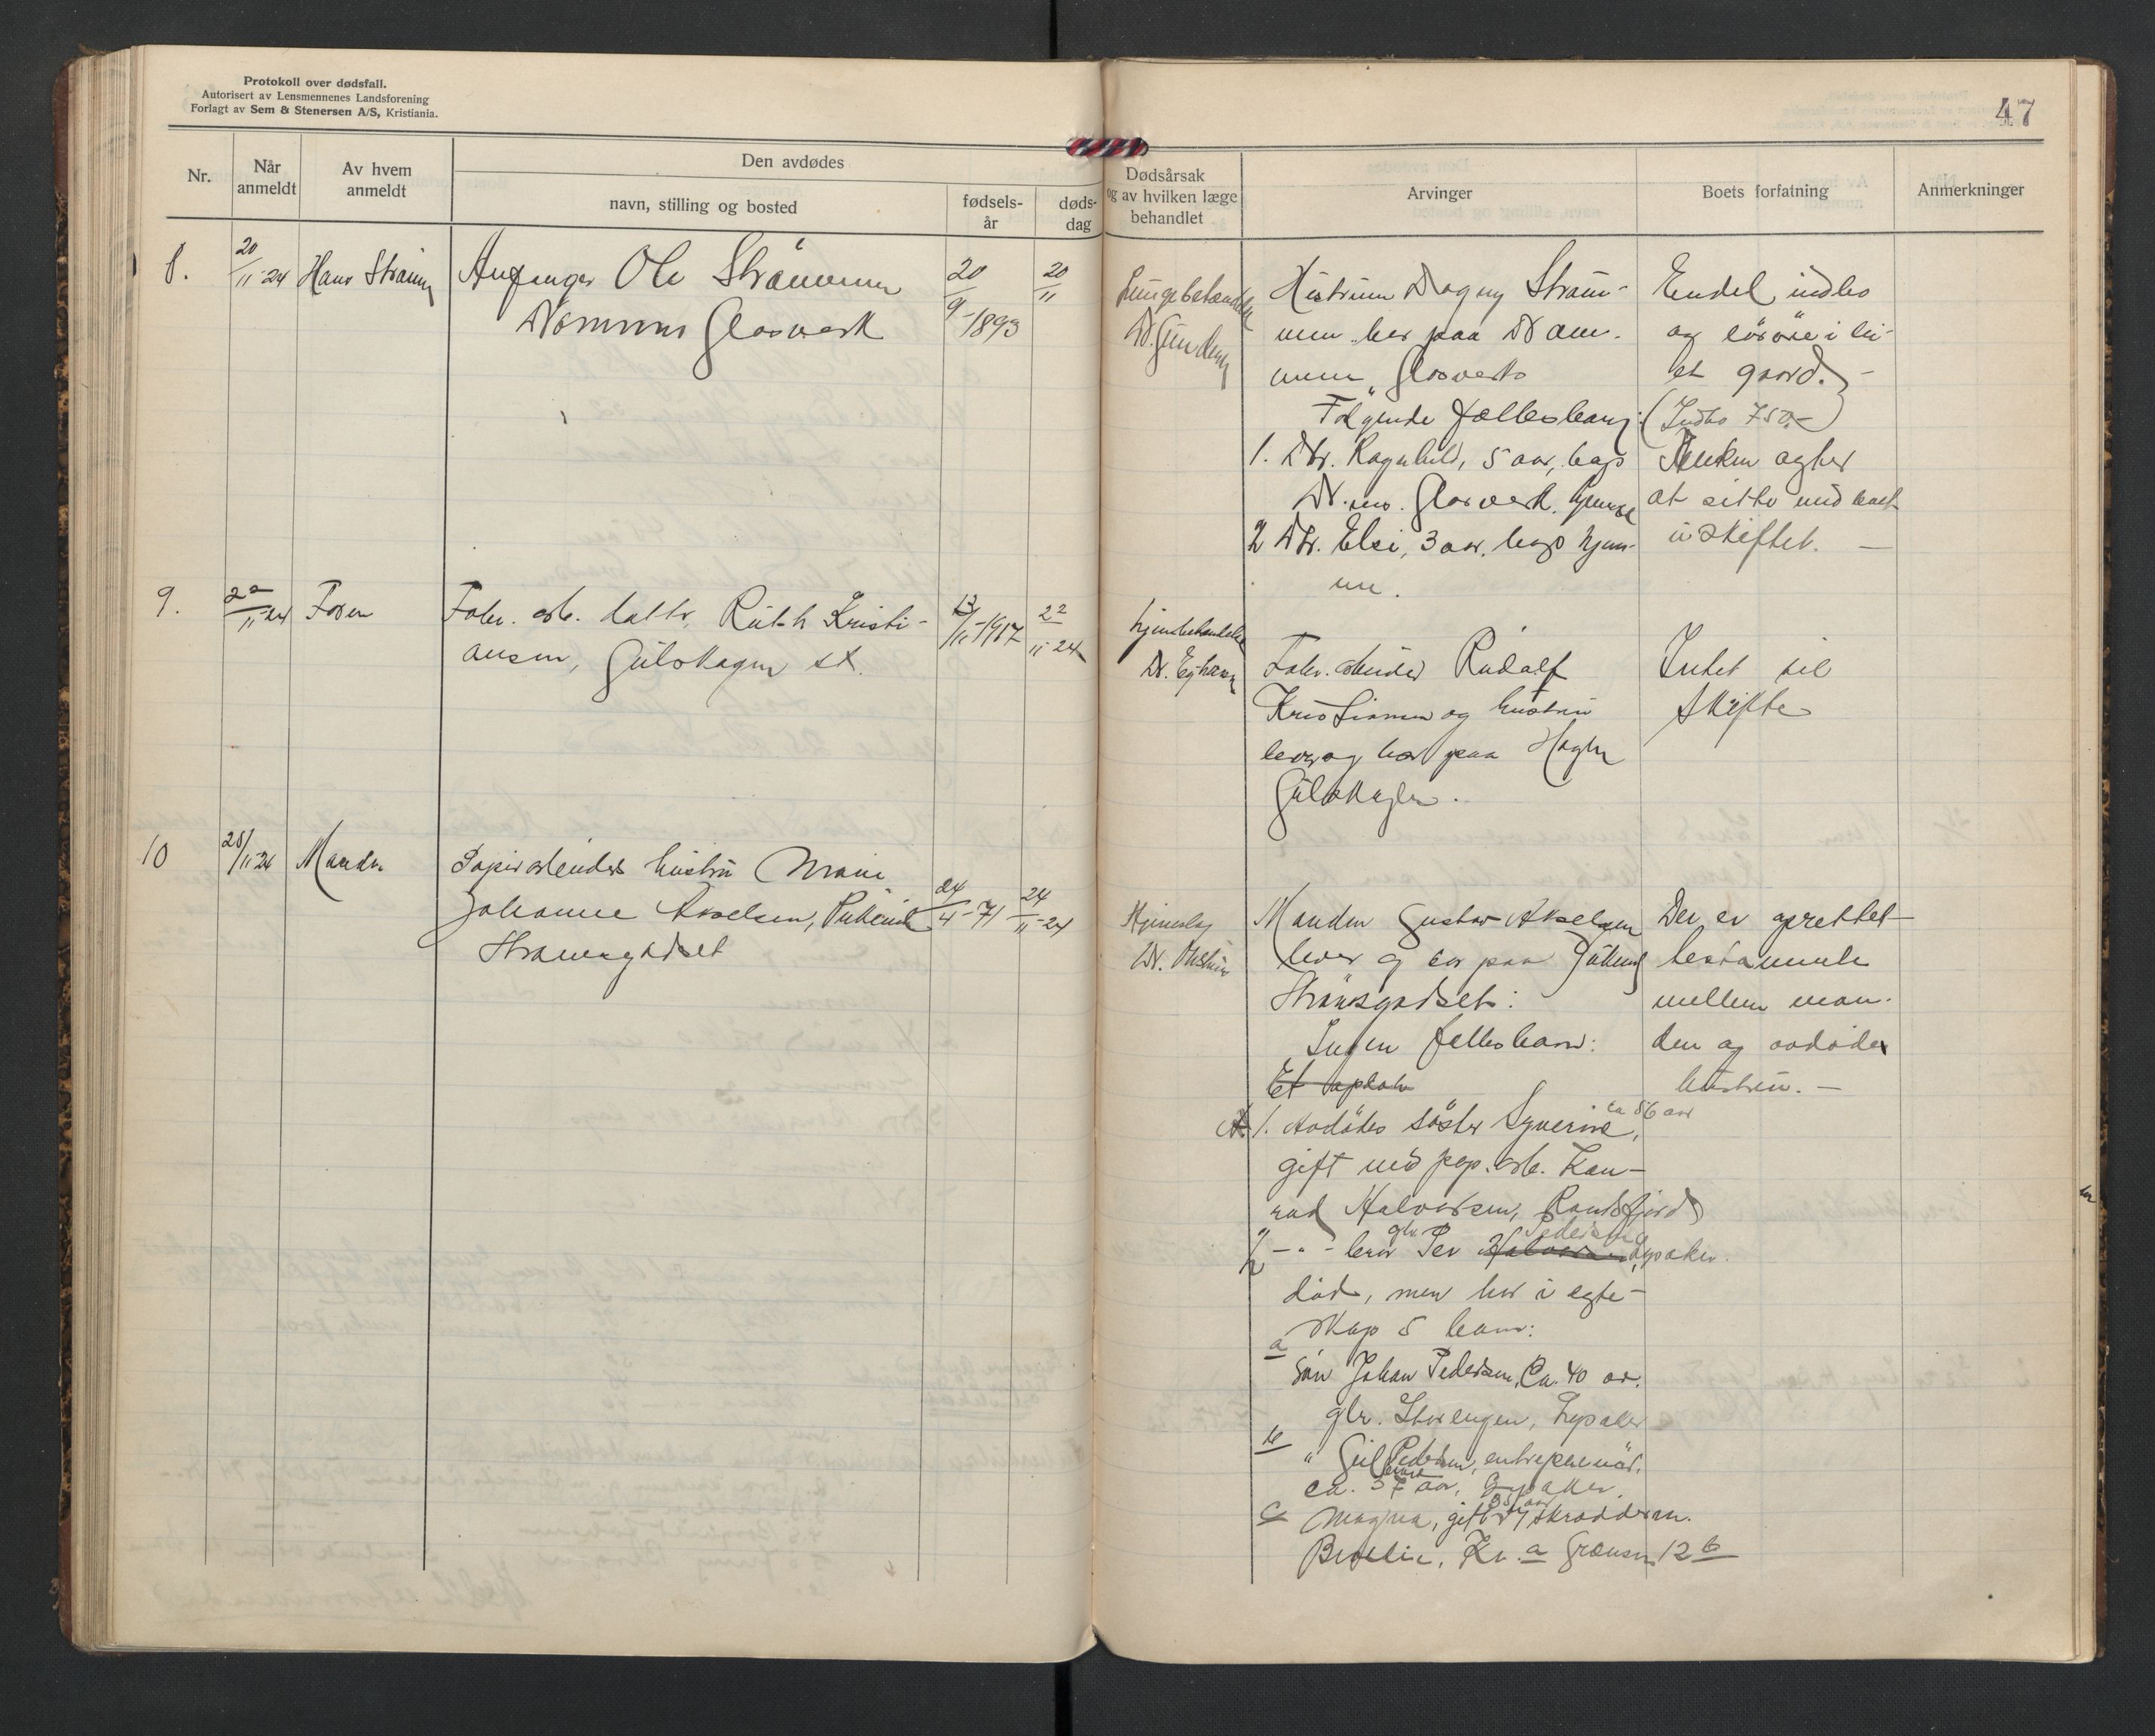 Protokoll over dødsfall.
Autorisert av Lensmennenes Landsforening
Forlagt av Sem & Stenersen A/S, Kristiania.
47
Nr.
Når anmeldt
Av hvem anmeldt
Den avdødes
navn, stilling og bosted
fødsels-år
døds-dag
Dødsårsak og av hvilken læge behandlet
Arvinger
Boets forfatning
Anmerkninger
8.
20/11-24
Hans Strømm
Ole Strømmen
Drammens Glasverk
20/9-1893
20/11
Lungebetændelse
Dr.
Hustruen Dagny Strøm-
men bor paa Dram-
mens Glasverk
Følgende fællesbarn:
1. Dtr. Ragnhild, 5 aar, bays
Dr.ms. Glasverk. hjemme
2 Dtr. Elsi, 3 aar, hjem-
me.
Endel indbo
og løsøre i lei-
et gaard. -
(Indbo 750,-)
Enken agter
at sitte med boet
uskiftet. —
9.
22/11-24
Faren
Fabr. arb. datter, Ruth Kristi-
ansen, Gulskogen st.
13/11-1917
22/11-24
hjernebetændelse
Dr.
Fabr. arbeider Rudolf
Kristiansen og hustru
lever og bor paa
Gulskogen.
Intet til
skifte
10
28/11-24
Manden
Papirarbeider hustru Marie
Johanne Akselsen,
Strømsgodset
24/4-71
24/11-24
Hjerneslag
Dr.
Manden Gustav Akselsen
lever og bor paa
Strømsgodset:
Ingen fellesbarn:
Et
A. 1. Avdødes søster Syverine, ca 56 aar
gift med pap. arb. Kon-
rad Halvorsen, Randsfjord
2 - " - bror Per Halvorsen Pedersen, Lysaker.
død, men har i egte-
skap 5 barn:
a
Søn Johan Pedersen, Ca. 40 år.
gbr. Storengen, Lysaker
b
" Pedersen, entreprenør,
ca. 37 aar, Lysaker.
c Magna, gift skrædderm.
Kr.a Grænsen 12 b
Der er oprettet
testamente
mellem man-
den og avdøde
hustru. —